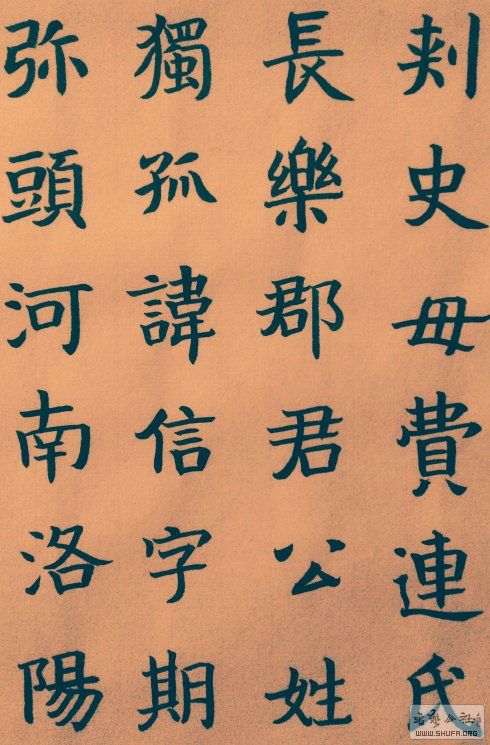 刾史毋費連氏
長樂郡君公姓
獨孤諱信字期
弥頭河南洛陽
WWW.SHUFA.ORG